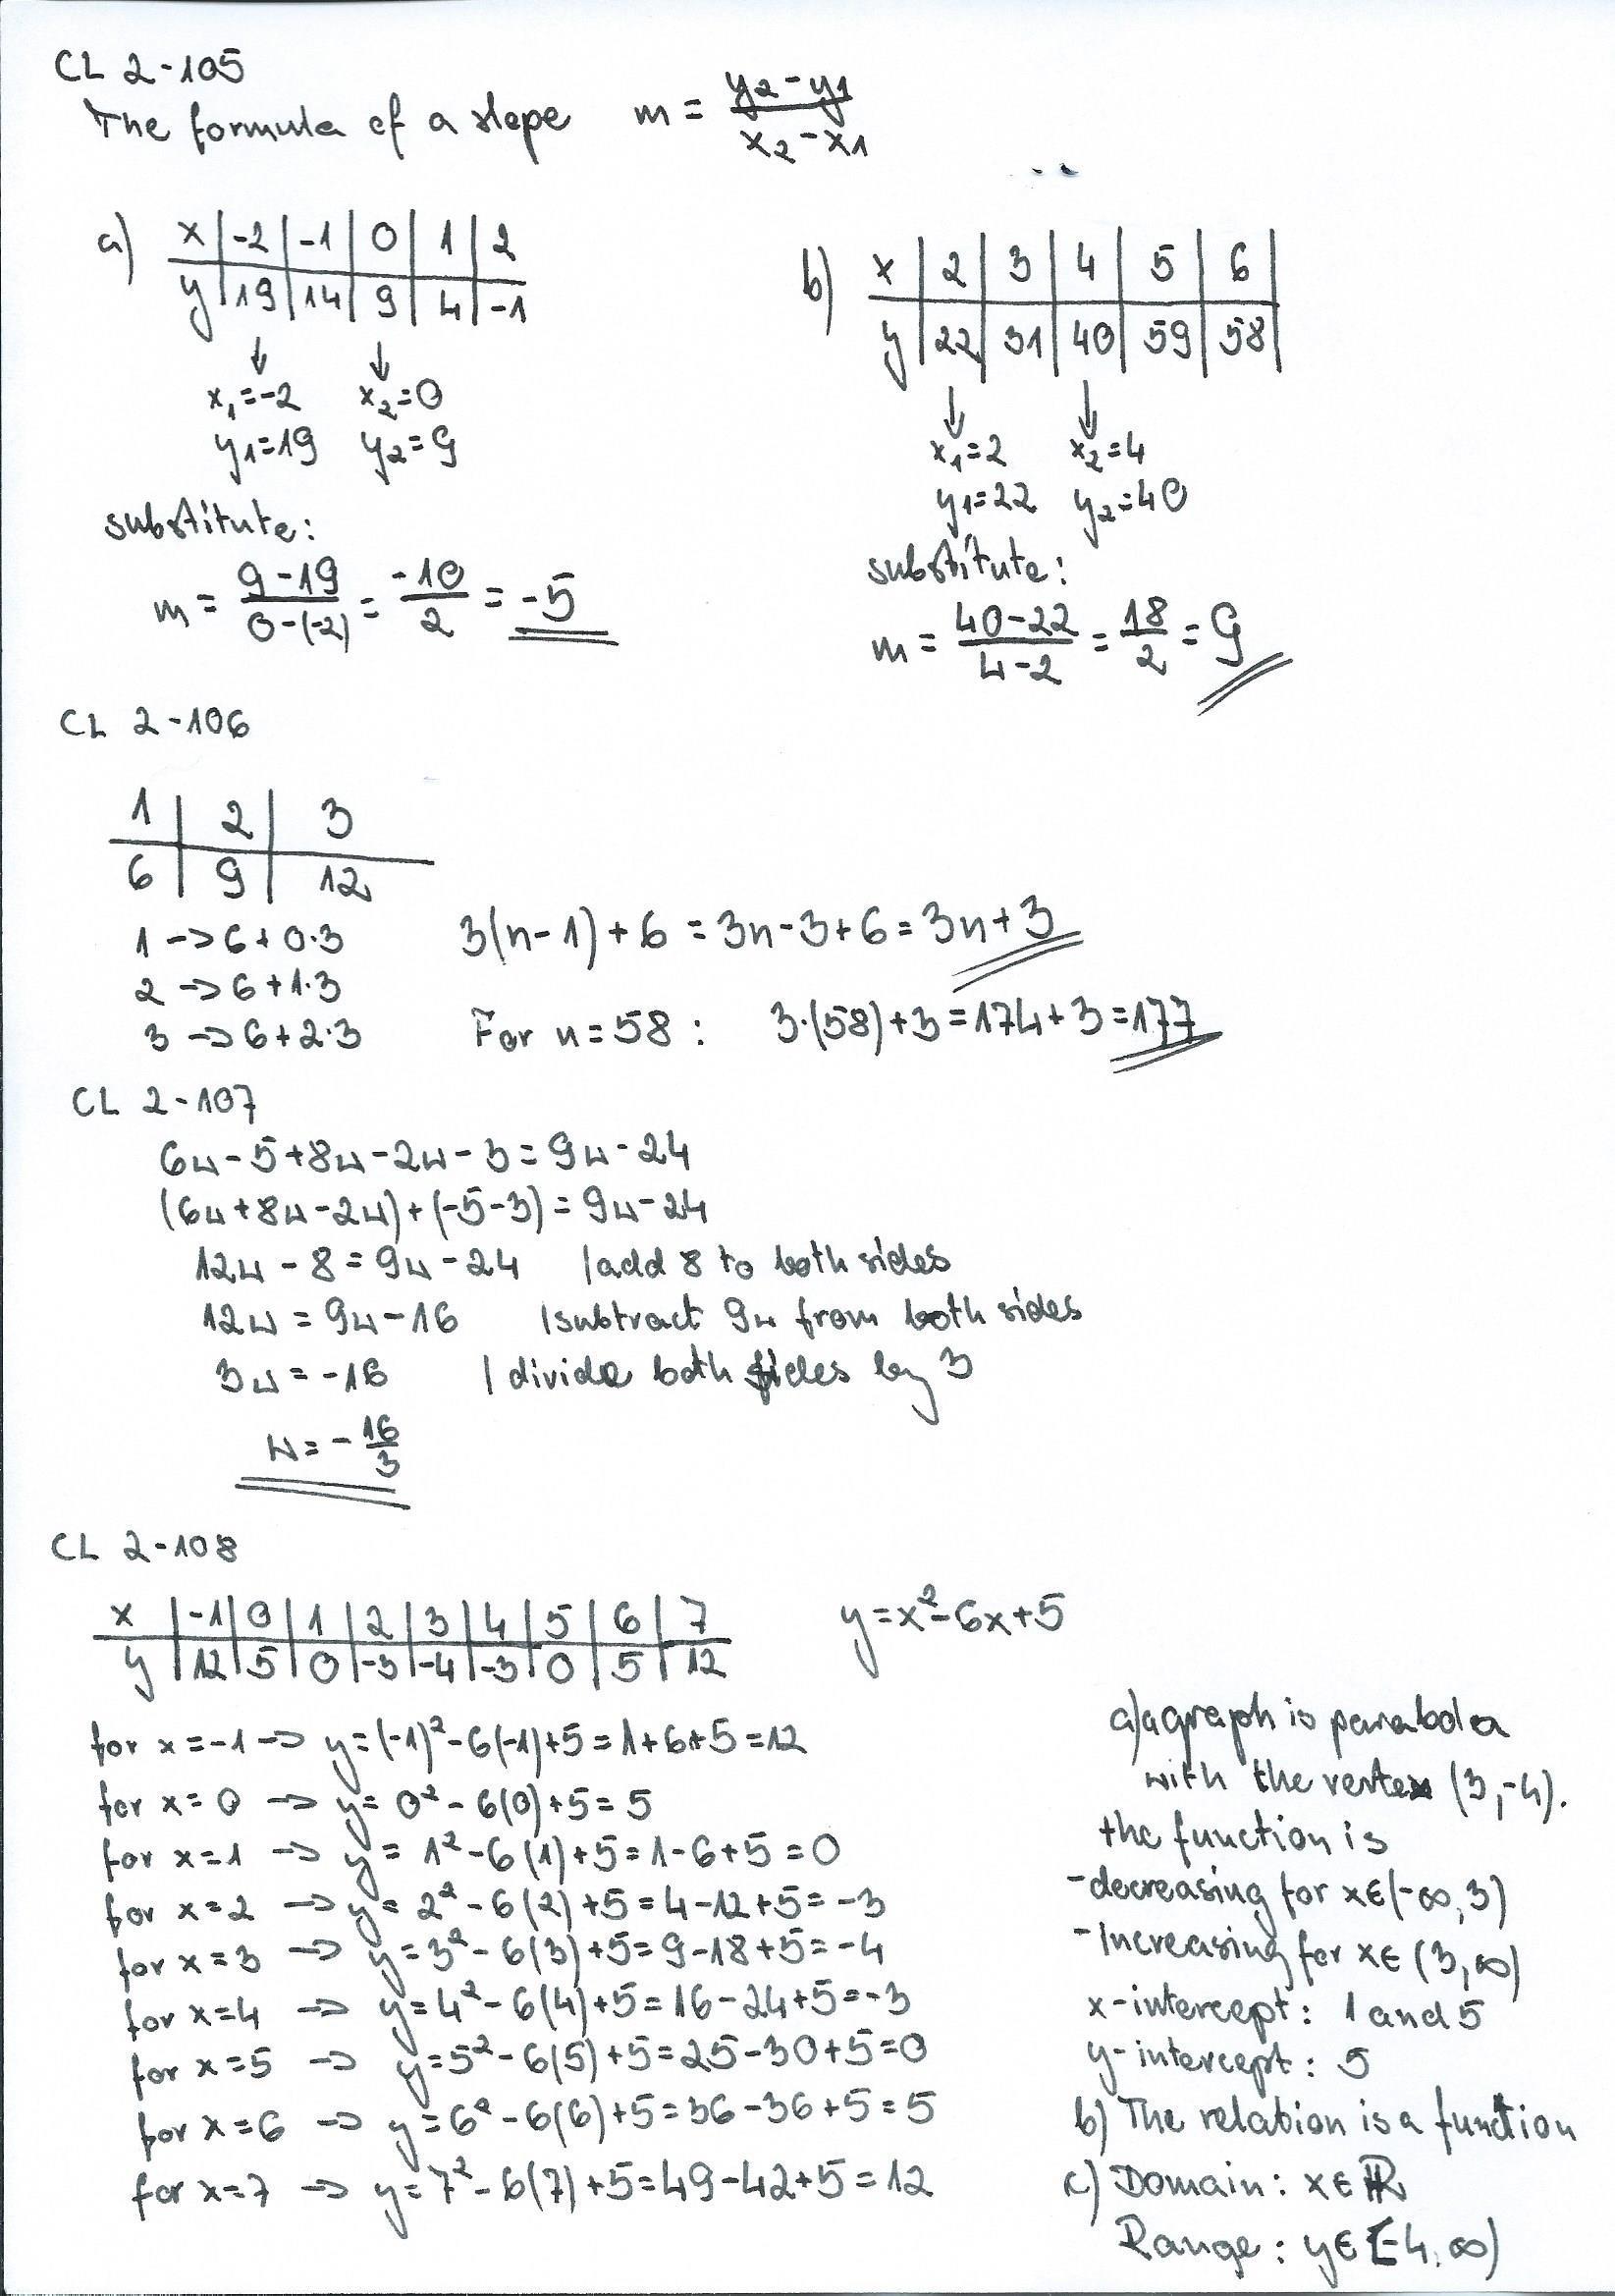 CL 2-105
The formula of a slope m = (y2-y1)/(x2-x1)
a)
x | -2 | -1 | 0 | 1 | 2
y | 19 | 14 | 9 | 4 | -1
↓ ↓
x1=-2 x2=0
y1=19 y2=9
substitute:
m = (9-19)/(0-(-2)) = -10/2 = -5
b)
x | 2 | 3 | 4 | 5 | 6 |
y | 22 | 31 | 40 | 59 | 58 |
↓ ↓
x1=2 x2=4
y1=22 y2=40
substitute:
m = (40-22)/(4-2) = 18/2 = 9
CL 2-106
1 | 2 | 3
6 | 9 | 12
1 -> 6+0·3
2 -> 6+1·3
3 -> 6+2·3
3(n-1)+6 = 3n-3+6 = 3n+3
For n=58: 3·(58)+3=174+3=177
CL 2-107
6w-5+8w-2w-3=9w-24
(6w+8w-2w)+(-5-3)=9w-24
12w-8=9w-24 |add 8 to both sides
12w=9w-16 |subtract 9w from both sides
3w=-16 |divide both sides by 3
w=-16/3
CL 2-108
x | -1 | 0 | 1 | 2 | 3 | 4 | 5 | 6 | 7
y | 12 | 5 | 0 | -3 | -4 | -3 | 0 | 5 | 12
y=x²-6x+5
for x=-1 -> y=(-1)²-6(-1)+5=1+6+5=12
for x=0 -> y=0²-6(0)+5=5
for x=1 -> y=1²-6(1)+5=1-6+5=0
for x=2 -> y=2²-6(2)+5=4-12+5=-3
for x=3 -> y=3²-6(3)+5=9-18+5=-4
for x=4 -> y=4²-6(4)+5=16-24+5=-3
for x=5 -> y=5²-6(5)+5=25-30+5=0
for x=6 -> y=6²-6(6)+5=36-36+5=5
for x=7 -> y=7²-6(7)+5=49-42+5=12
a) a graph is parabola
with the vertex (3,-4).
the function is
-decreasing for x∈(-∞,3)
-Increasing for x∈(3,∞)
x-intercept: 1 and 5
y-intercept: 5
b) The relation is a function
c) Domain: x∈ℝ
Range: y∈[-4,∞)